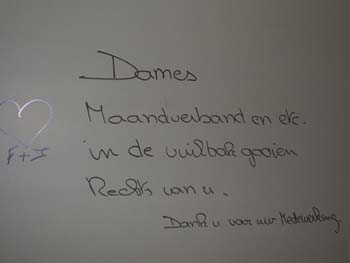 Dames
Maandverband en etc.
in de vuilbak gooien
Rechts van u.
Dank u voor uw Medewerking.
F + J